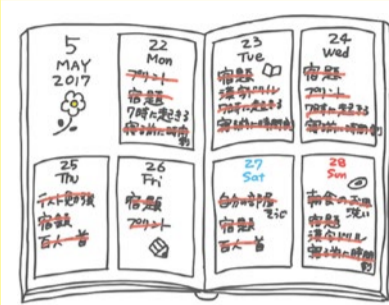 5
MAY
2017
22
Mon
プリント
宿題
7時に起きる
寝る前に時間割
23
Tue
宿題
漢字ドリル
7時に起きる
寝る前に時間割
24
Wed
宿題
プリント
7時に起きる
寝る前に時間割
25
Thu
テスト勉強
宿題
百人一首
26
Fri
宿題
プリント
27
Sat
自分の部屋
そうじ
宿題
百人一首
28
Sun
朝食のお皿
洗い
宿題
漢字ドリル
寝る前に時間
割